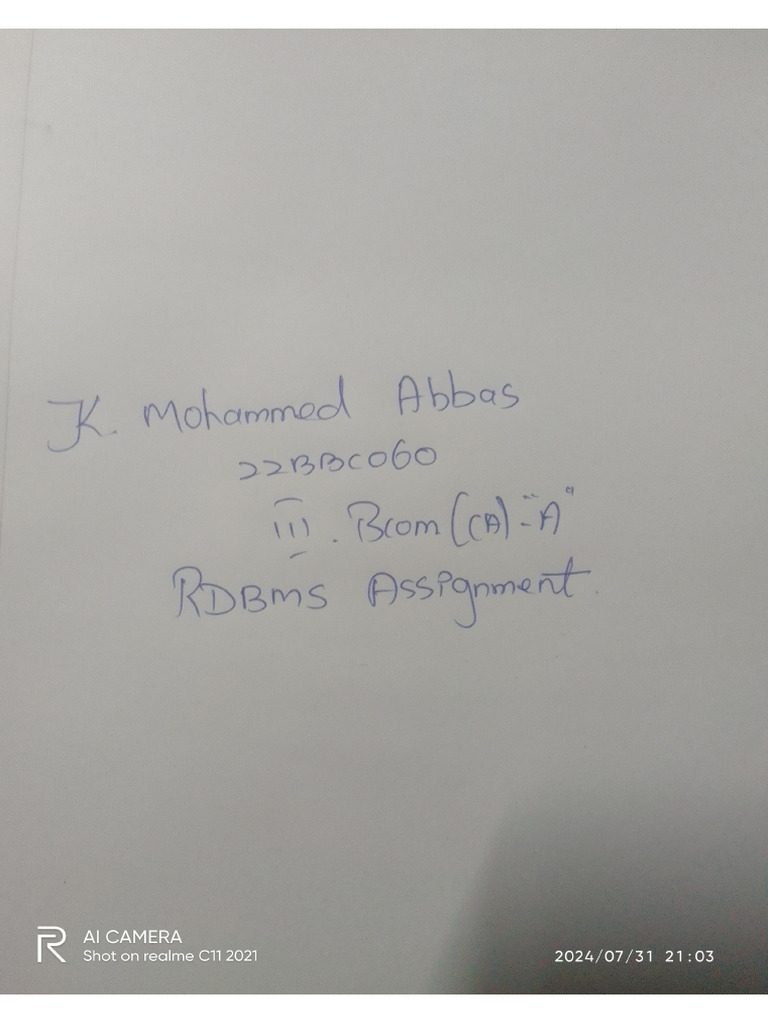 K. Mohammed Abbas
22BBC060
III. Bcom (CA)-"A"
RDBMS Assignment.
AI CAMERA
Shot on realme C11 2021
2024/07/31 21:03